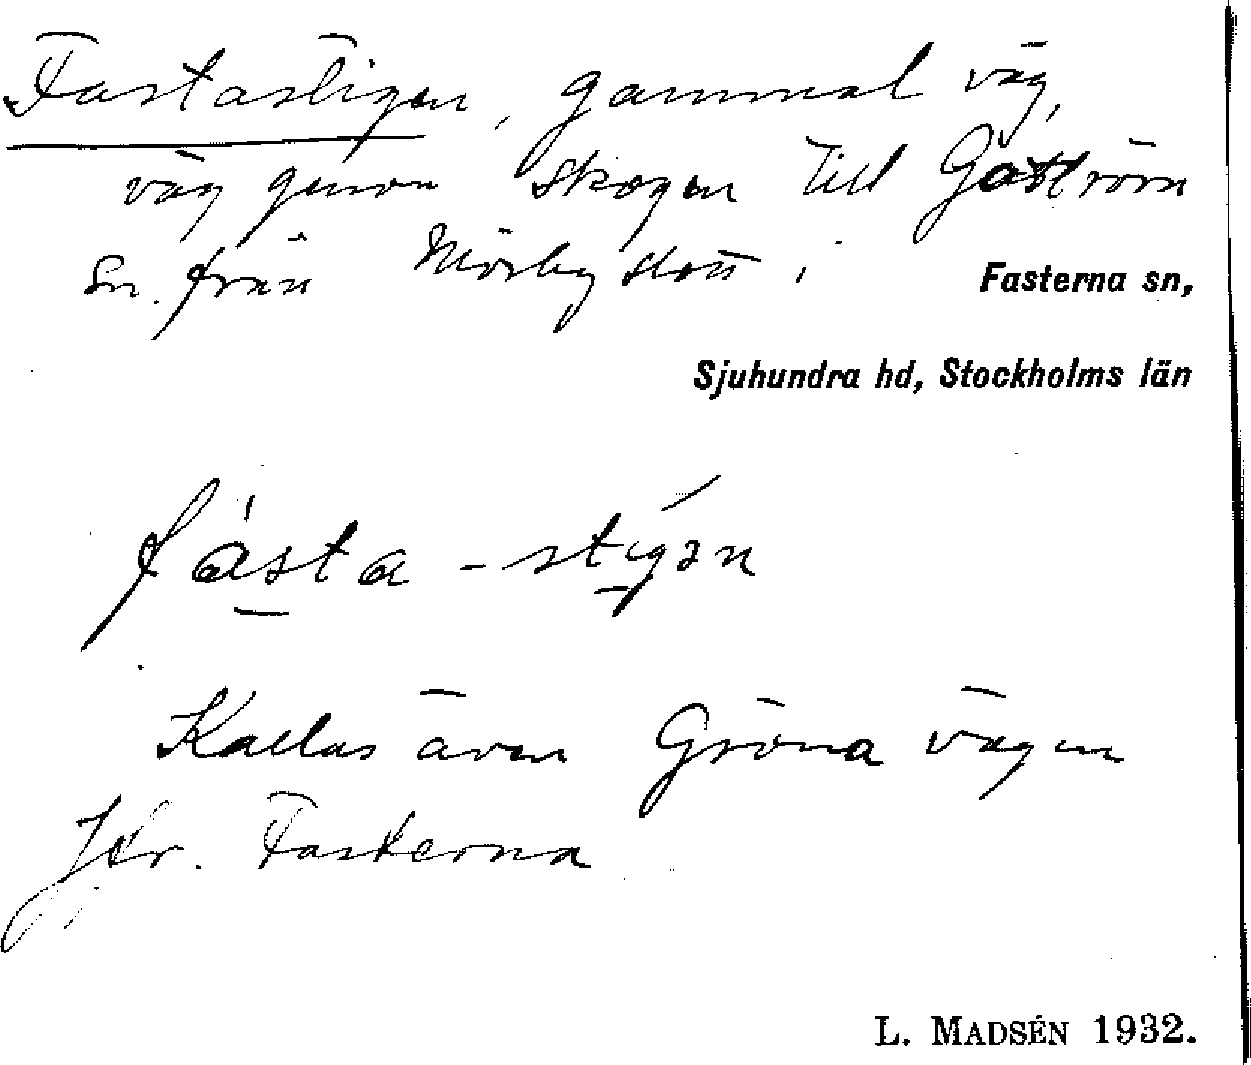 Fastastigen, gammal väg,
väg genom skogen till Gottröra
sn. från Mörby slott i Fasterna sn,
Sjuhundra hd, Stockholms län
fásta-stígən
Kallas även Gröna vägen
Jfr. Fasterna
L. MADSÉN 1932.